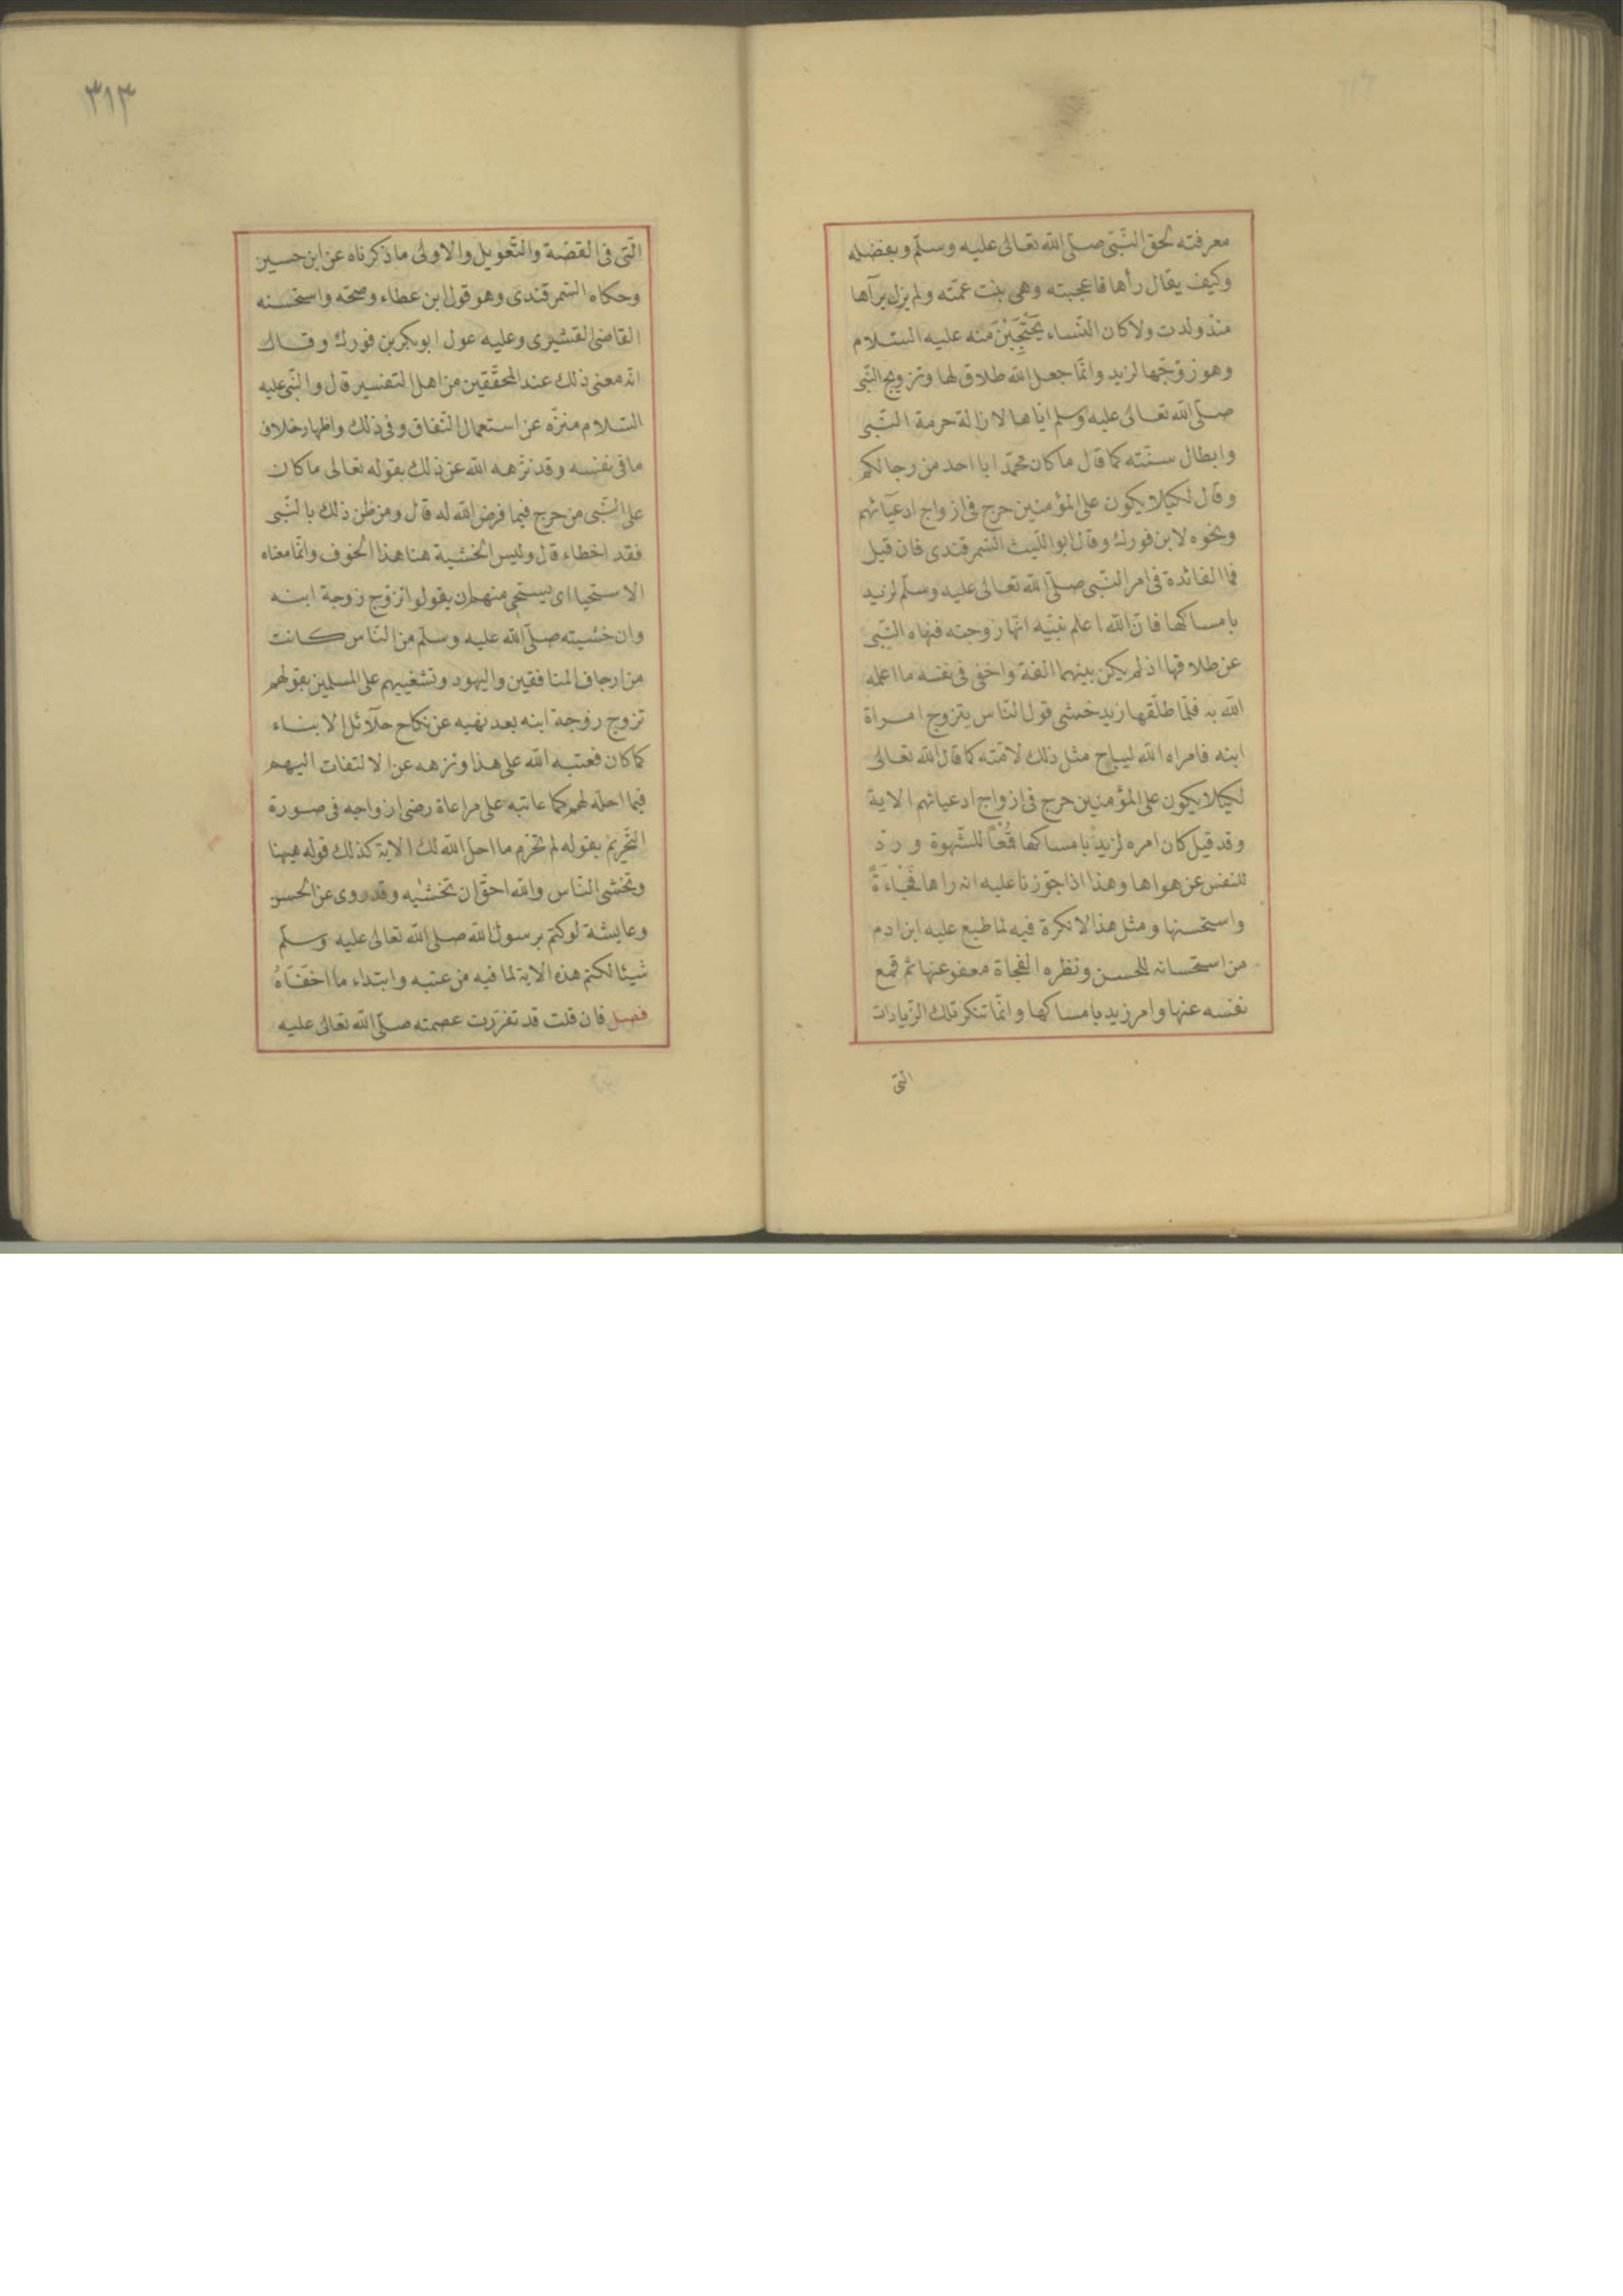 معرفته بحق النّبىّ صلّى الله تعالى عليه وسلّم وبفضله
وكيف يقال رأها فاعجبته وهى بنت عمّته ولم يزل يرآها
منذ ولدت ولا كان النّساء يَحْتَجِبْنَ منه عليه السّلام
وهو زوّجها لزيد وانّما جعل الله طلاق لها وتزويج النّبى
صلّى الله تعالى عليه وسلم ايّاها لازالة حرمة النّبى
وابطال سنّته كما قال ما كان محمّد ابا احد من رجالكم
وقال لكيلا يكون على المؤمنين حرج فى ازواج ادعيآئهم
ونحوه لابن فورك وقال ابو اللّيث السّمرقندى فان قيل
فما الفائدة فى امر النّبى صلّى الله تعالى عليه وسلّم لزيد
بامساكها فانّ الله اعلم نبيّه انّها زوجته فنهاه النّبى
عن طلاقها اذ لم يكن بينهما الفة واخفى فى نفسه ما اعلمه
الله به فلمّا طلّقها زيد خشى قول النّاس يتزوج امراة
ابنه فامراه الله ليباح مثل ذلك لامّته كما قال الله تعالى
لكيلا يكون على المؤمنين حرج فى ازواج ادعيائهم الاية
وقد قيل كان امره لزيد بامساكها قمعًا للشّهوة و ردّ
للنفس عن هواها وهذا اذا جوّزنا عليه انه راها فَجْاَءَةً
واستحسنها ومثل هذا لا نكرة فيه لما طبع عليه ابن ادم
من استحسانه للحسن ونظره الفجاة معفو عنها ثم قمع
نفسه عنها وامر زيد بامساكها وانّما تنكر تلك الزّيادات
التى
٣١٣
الّتى فى القصّة والتّعويل والاولى ما ذكرناه عن ابن حسين
وحكاه السّمرقندى وهو قول ابن عطاء وصحّه واستحسنه
القاضى القشيرى وعليه عول ابو بكر بن فورك وقال
انّه معنى ذلك عند المحقّقين من اهل التفسير قال والنّبى عليه
السّلام منزّه عن استعمال النّفاق وفى ذلك واظهار خلاف
ما فى نفسه وقد نزّهه الله عن ذلك بقوله تعالى ما كان
على النّبى من حرج فيما فرض الله له قال ومن ظن ذلك بالنّبى
فقد اخطاء قال وليس الخشية هنا هذا الخوف وانّما معناه
الاستحيا اى يستحى منهم ان يقولوا تزوّج زوجة ابنه
وان خشيته صلّى الله عليه وسلّم من النّاس كانت
من ارجاف المنافقين واليهود وتشغيبهم على المسلمين بقولهم
تزوج زوجة ابنه بعد نهيه عن نكاح حلآئل الابناء
كما كان فعتبه الله على هذا ونزهه عن الالتفات اليهم
فيما احلّه لهم كما عاتبه على مراعاة رضى ازواجه فى صورة
التّحريم بقوله لم تحرم ما احل الله لك الاية كذلك قوله هيهنا
وتخشى النّاس والله احقّ ان تخشيه وقد روى عن الحسن
وعايشة لو كتم برسول الله صلى الله تعالى عليه وسلّم
شيئا لكتم هذه الاية لما فيه من عتبه وابتداء ما اخفاهُ
فصل فان قلت قد تقرّرت عصمته صلّى الله تعالى عليه